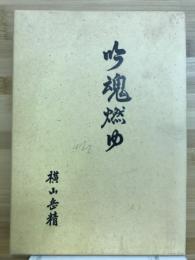 吟魂燃ゆ
横山岳精